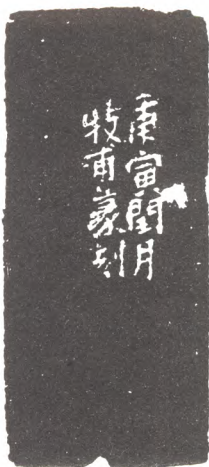 庚寅閏月
牧甫篆刻